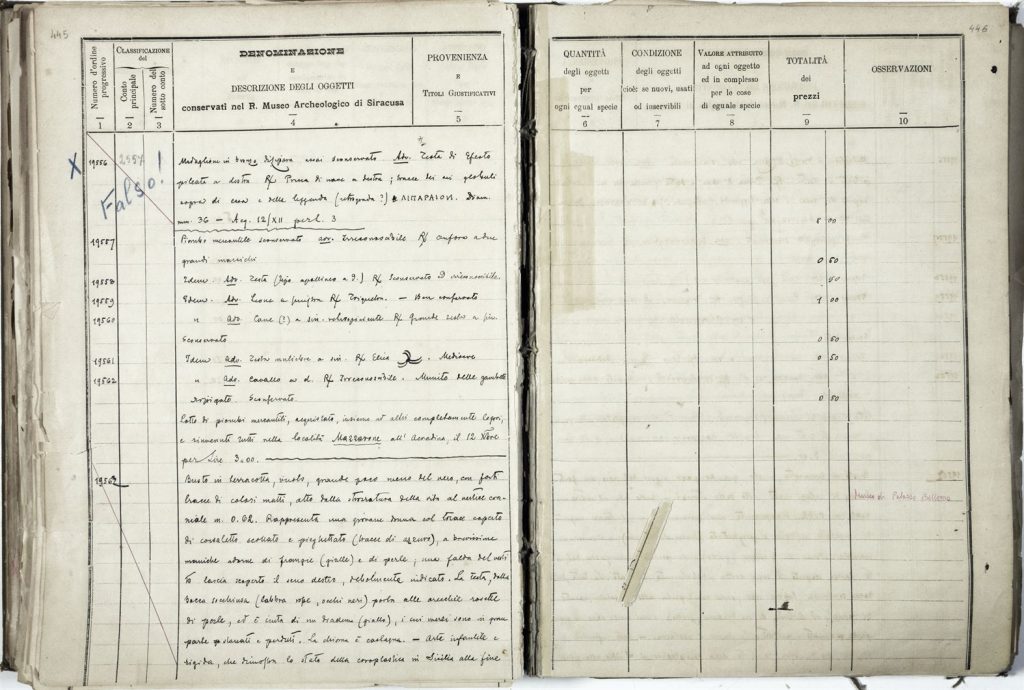 445
Numero d'ordine progressivo
CLASSIFICAZIONE del
Conto principale
Numero del sotto conto
DENOMINAZIONE
E
DESCRIZIONE DEGLI OGGETTI
conservati nel R. Museo Archeologico di Siracusa
PROVENIENZA
E
TITOLI GIUSTIFICATIVI
1 2 3 4 5
X 19556 2557 Medaglione in bronzo assai sconservato. Adv. Testa di Efesto
Falso!
pileata a destra R/ Prora di nave a destra; tracce dei sei globuli
sopra di essa e della leggenda (retrograda?) ΛΙΠΑΡΑΙΟΝ. Diam.
mm. 36 — Acq. 12/XII per l. 3
19557 Piombo mercantile sconservato adv. Irreconoscibile R/ anfora a due
grandi manichi
19558 Idem. Adv. Testa (tipo apollineo a d.) R/ Sconservato ed irriconoscibile.
19559 Idem. Adv. Leone a R/ Triquetra. — Ben conservato
19560 " Ad. Cane (?) a sin. retrospiciente R/ Grande testa a sin.
Sconservato
19561 Idem Adv. Testa muliebre a sin. R/ Elica. Mediocre
19562 " Adv. Cavallo a d. R/ Irreconoscibile. Munito delle
Sconservato.
Lotto di piombi mercantili, acquistato, insieme ad altri completamente logori,
e rinvenuti tutti nella località Mazzarone all' Acradina, il 12 Nbre
per Lire 3.00.
19563 Busto in terracotta, vuoto, grande poco meno del vero, con forti
tracce di colori matti, alto dalla troncatura della vita al vertice cra-
niale m. 0.62. Rappresenta una giovane donna col torace coperto
di corsaletto scollato e pieghettato (tracce di azzurro), a brevissime
maniche adorne di frange (gialle) e di perle; una falda del vesti
to lascia scoperto il seno destro, debolmente indicato. La testa, dalla
bocca socchiusa (labbra rose, occhi neri) porta alle orecchie rosette
di perle, ed è cinta di un diadema (giallo), i cui merli sono in gran
parte e perduti. La chioma è castagna. — Arte infantile e
rigida, che dimostra lo stato della coroplastica in Sicilia alla fine
446
QUANTITÀ
degli oggetti
per
ogni egual specie
CONDIZIONE
degli oggetti
cioè: se nuovi, usati
od inservibili
VALORE ATTRIBUITO
ad ogni oggetto
ed in complesso
per le cose
di eguale specie
TOTALITÀ
dei
prezzi
OSSERVAZIONI
6 7 8 9 10
5 00
0 50
1 00
0 50
0 50
0 50
Museo di Palazzo Bellomo